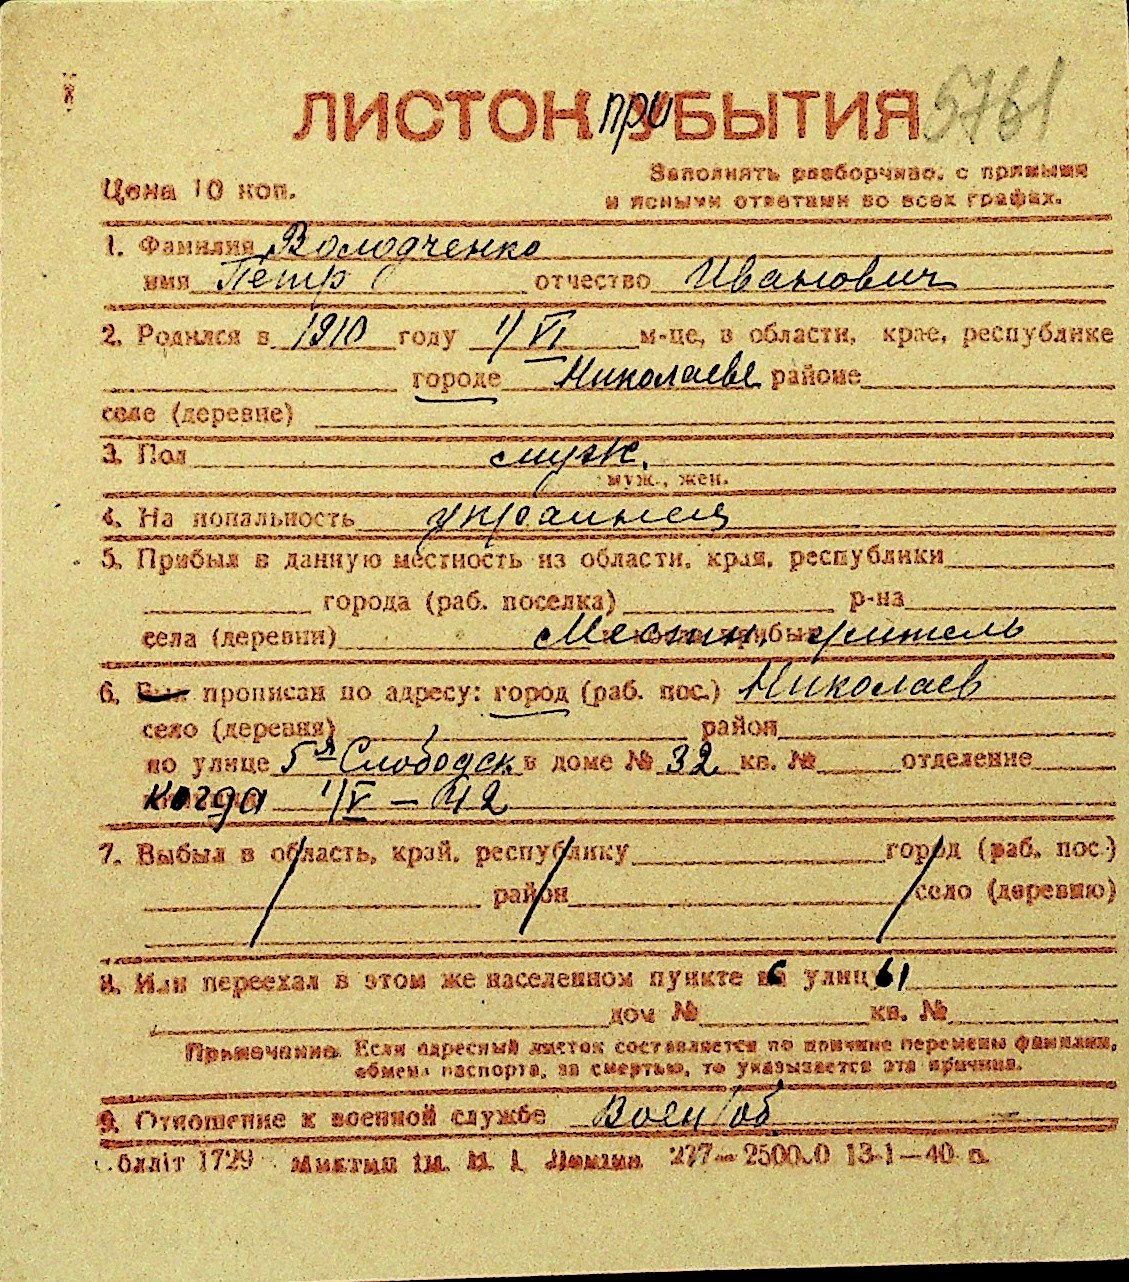 ЛИСТОК при УБЫТИЯ 5761
Цена 10 коп.
Заполнять разборчиво, с прямыми
и ясными ответами во всех графах.
1. Фамилия Володченко
имя Пётр отчество Иванович
2. Родился в 1910 году 1/VI м-це, в области, крае, республике
городе Николаеве районе
селе (деревне)
3. Пол муж.
муж., жен.
4. Национальность украинец
5. Прибыл в данную местность из области, края, республики
города (раб. поселка) р-на
села (деревни) Местн. житель
6. Был прописан по адресу: город (раб. пос.) Николаев
село (деревня) район
по улице 5я Слободск в доме № 32 кв. № отделение
Когда 1/V – 42
7. Выбыл в область, край, республику город (раб. пос.)
район село (деревню)
8. Или переехал в этом же населенном пункте с улицы
дом № кв. №
Примечание. Если адресный листок составляется по причине перемены фамилии,
обмена паспорта, за смертью, то указывается эта причина.
9. Отношение к военной службе Воен/об
Облліт 1729 Миктип ім. В. І. Леніна 277—25000 13-1—40 г.